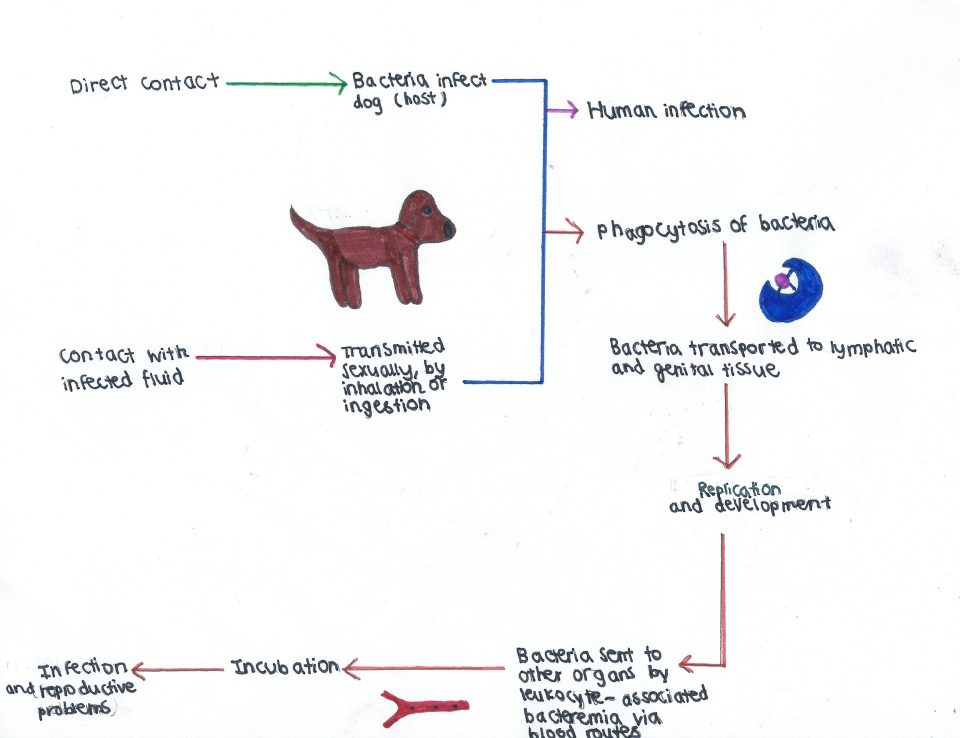 Direct contact
Bacteria infect
dog (host)
Human infection
Phagocytosis of bacteria
Contact with
infected fluid
Transmitted
sexually, by
inhalation or
ingestion
Bacteria transported to lymphatic
and genital tissue
Replication
and development
Bacteria sent to
other organs by
leukocyte-associated
bacteremia via
blood routes
Incubation
Infection
and (reproductive
problems)